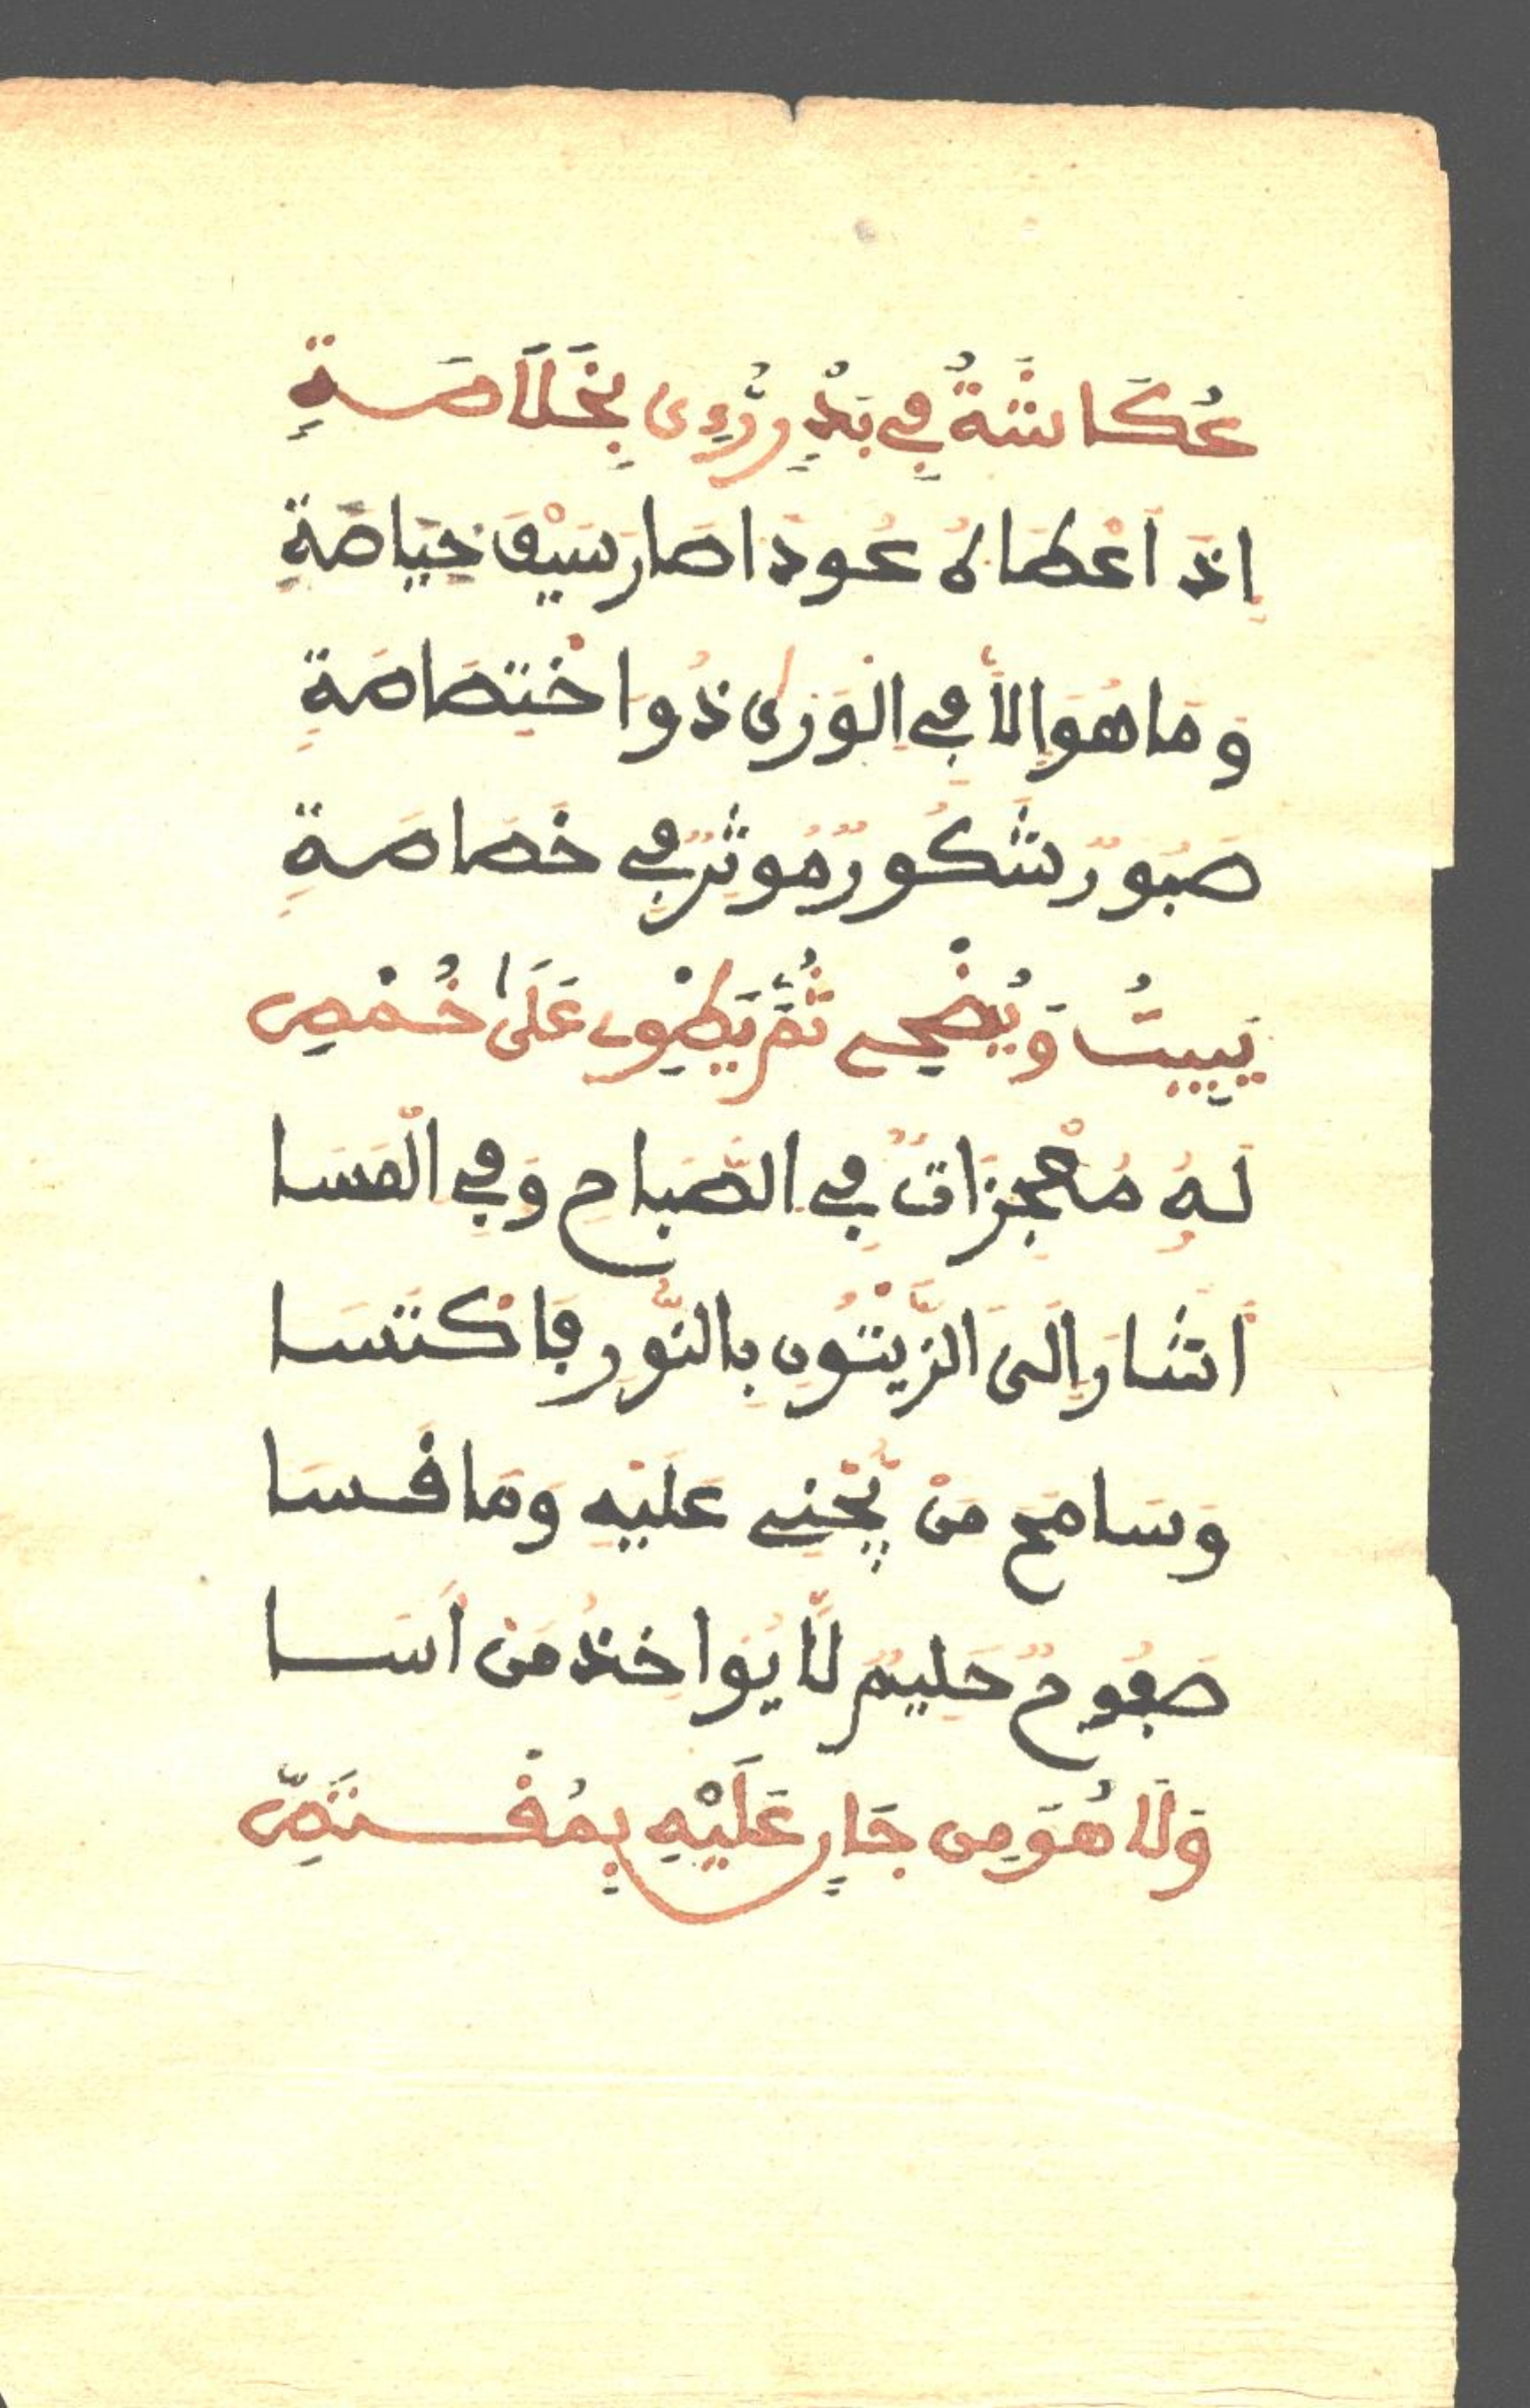 عُكَاشَةٌ فِي بَدْرٍ رُءِى بِخَلَاصَةِ
إِذَ اَعْطَاهُ عُودَا صَارَ سَيْفَ خِيَاصَةِ
وَمَا هُوَ إِلَّا فِي الْوَرَى ذُو اخْتِصَاصَةِ
صَبُورٌ شَكُورٌ مُوثِرٌ فِي خَصَاصَةِ
يَبِيتُ وَيُضْحِي ثُمَّ يَطْوِي عَلَى خُمْصِ
لَهُ مُعْجِزَاتٌ فِي الصَّبَاحِ وَفِي الْمَسَا
اَشَارَ إِلَى الزَّيْتُونِ بِالنُّورِ فَاكْتَسَا
وَسَامَحَ مَنْ يَّجْنِي عَلَيْهِ وَمَا قَسَا
صَفُوحٌ حَلِيمٌ لَّا يُوَاخِذُ مَنْ اَسَا
وَلَا هُوَ مِن جَارٍ عَلَيْهِ بِمُقْتَصِّ